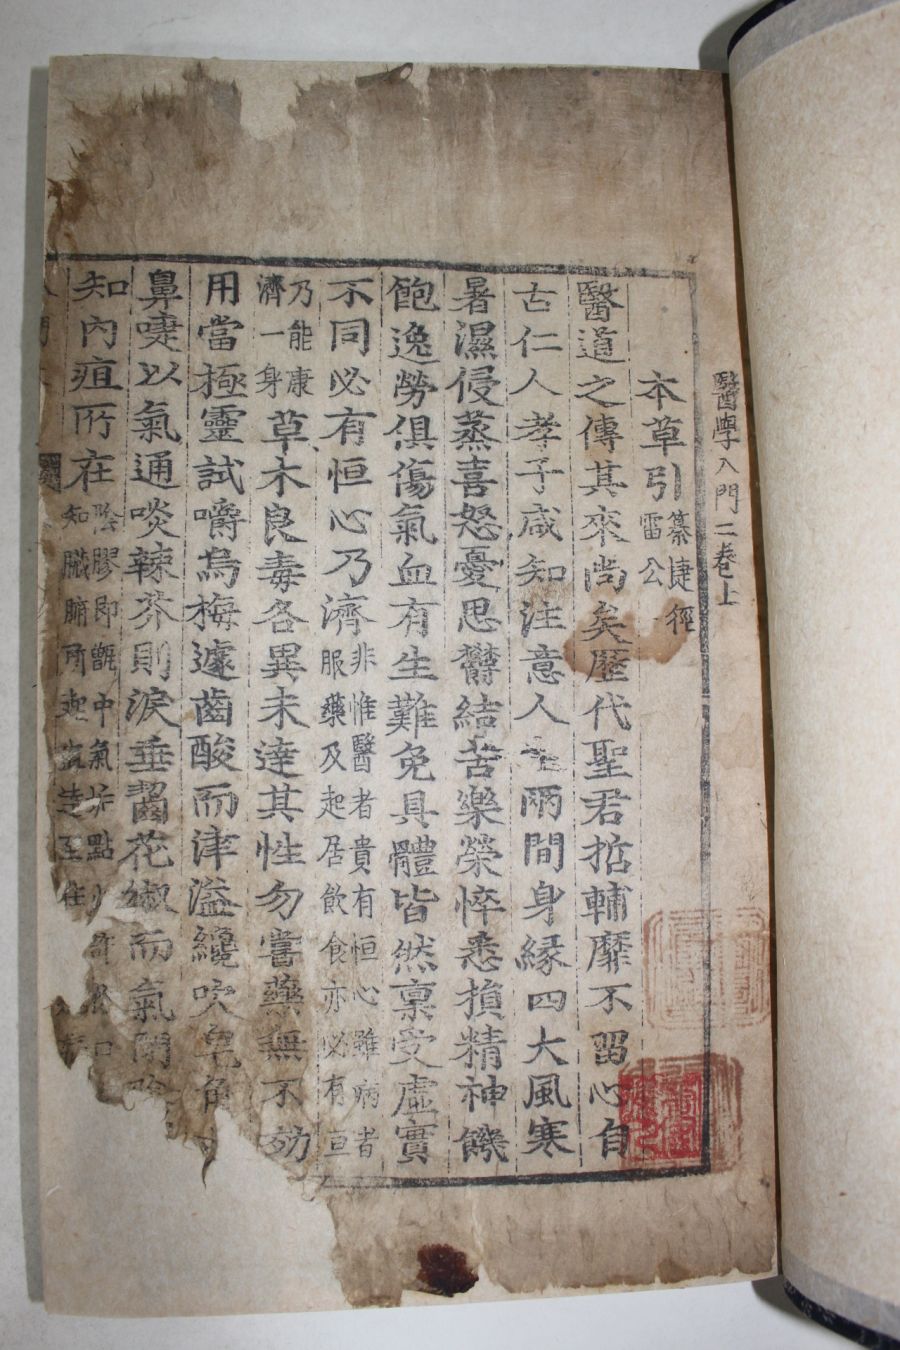 醫學入門二卷上
本草引纂捷徑雷公
醫道之傳其來尚矣歷代聖君哲輔靡不留心自
古仁人孝子咸知注意人 兩間身緣四大風寒
暑濕侵蒸喜怒憂思鬱結苦樂榮悴悉損精神饑
飽逸勞俱傷氣血有生難免具體皆然稟受虛實
不同必有恒心乃濟非惟醫者貴有恒心雖病者服藥及起居飲食亦必有恒
乃能康濟一身草木良毒各異未達其性勿嘗藥無不効
用當極靈試嚼烏梅遽齒酸而津溢纔吹皂角
鼻嚏以氣通啖辣芥則淚垂囓花椒而氣閉
知內疽所在陰膠即甑中氣 點少許於口知臟腑所起 至住